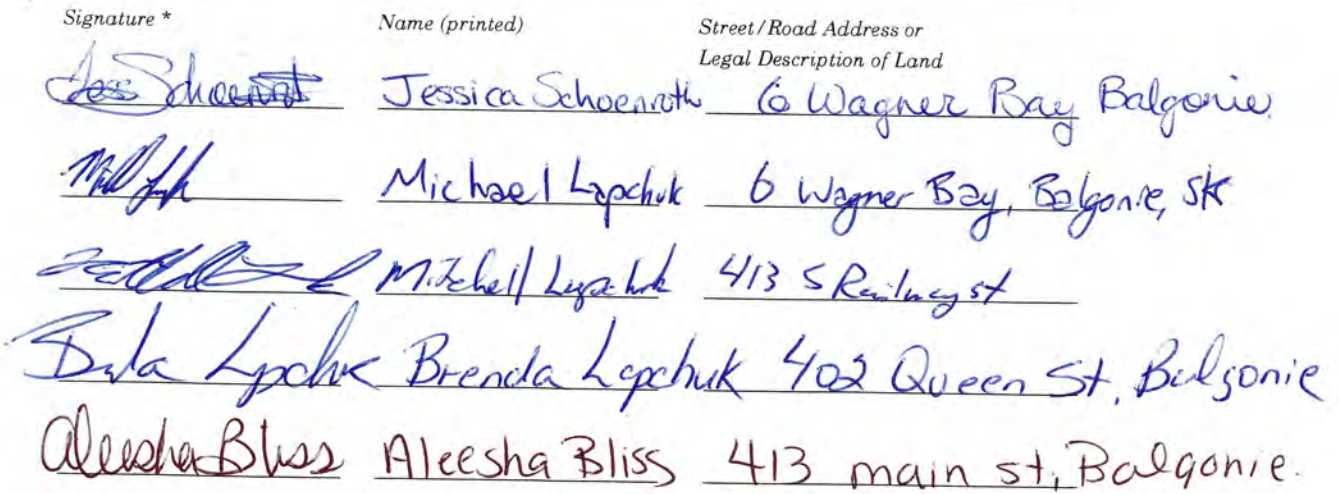 Signature * Name (printed) Street/Road Address or
Legal Description of Land
Jess Schoenroth Jessica Schoenroth 6 Wagner Bay Balgonie
Michael Lapchuk 6 Wagner Bay, Balgonie, SK
Mitchell Lapchuk 413 S Railway st
Brenda Lapchuk 402 Queen St, Balgonie
Aleesha Bliss Aleesha Bliss 413 main st, Balgonie.